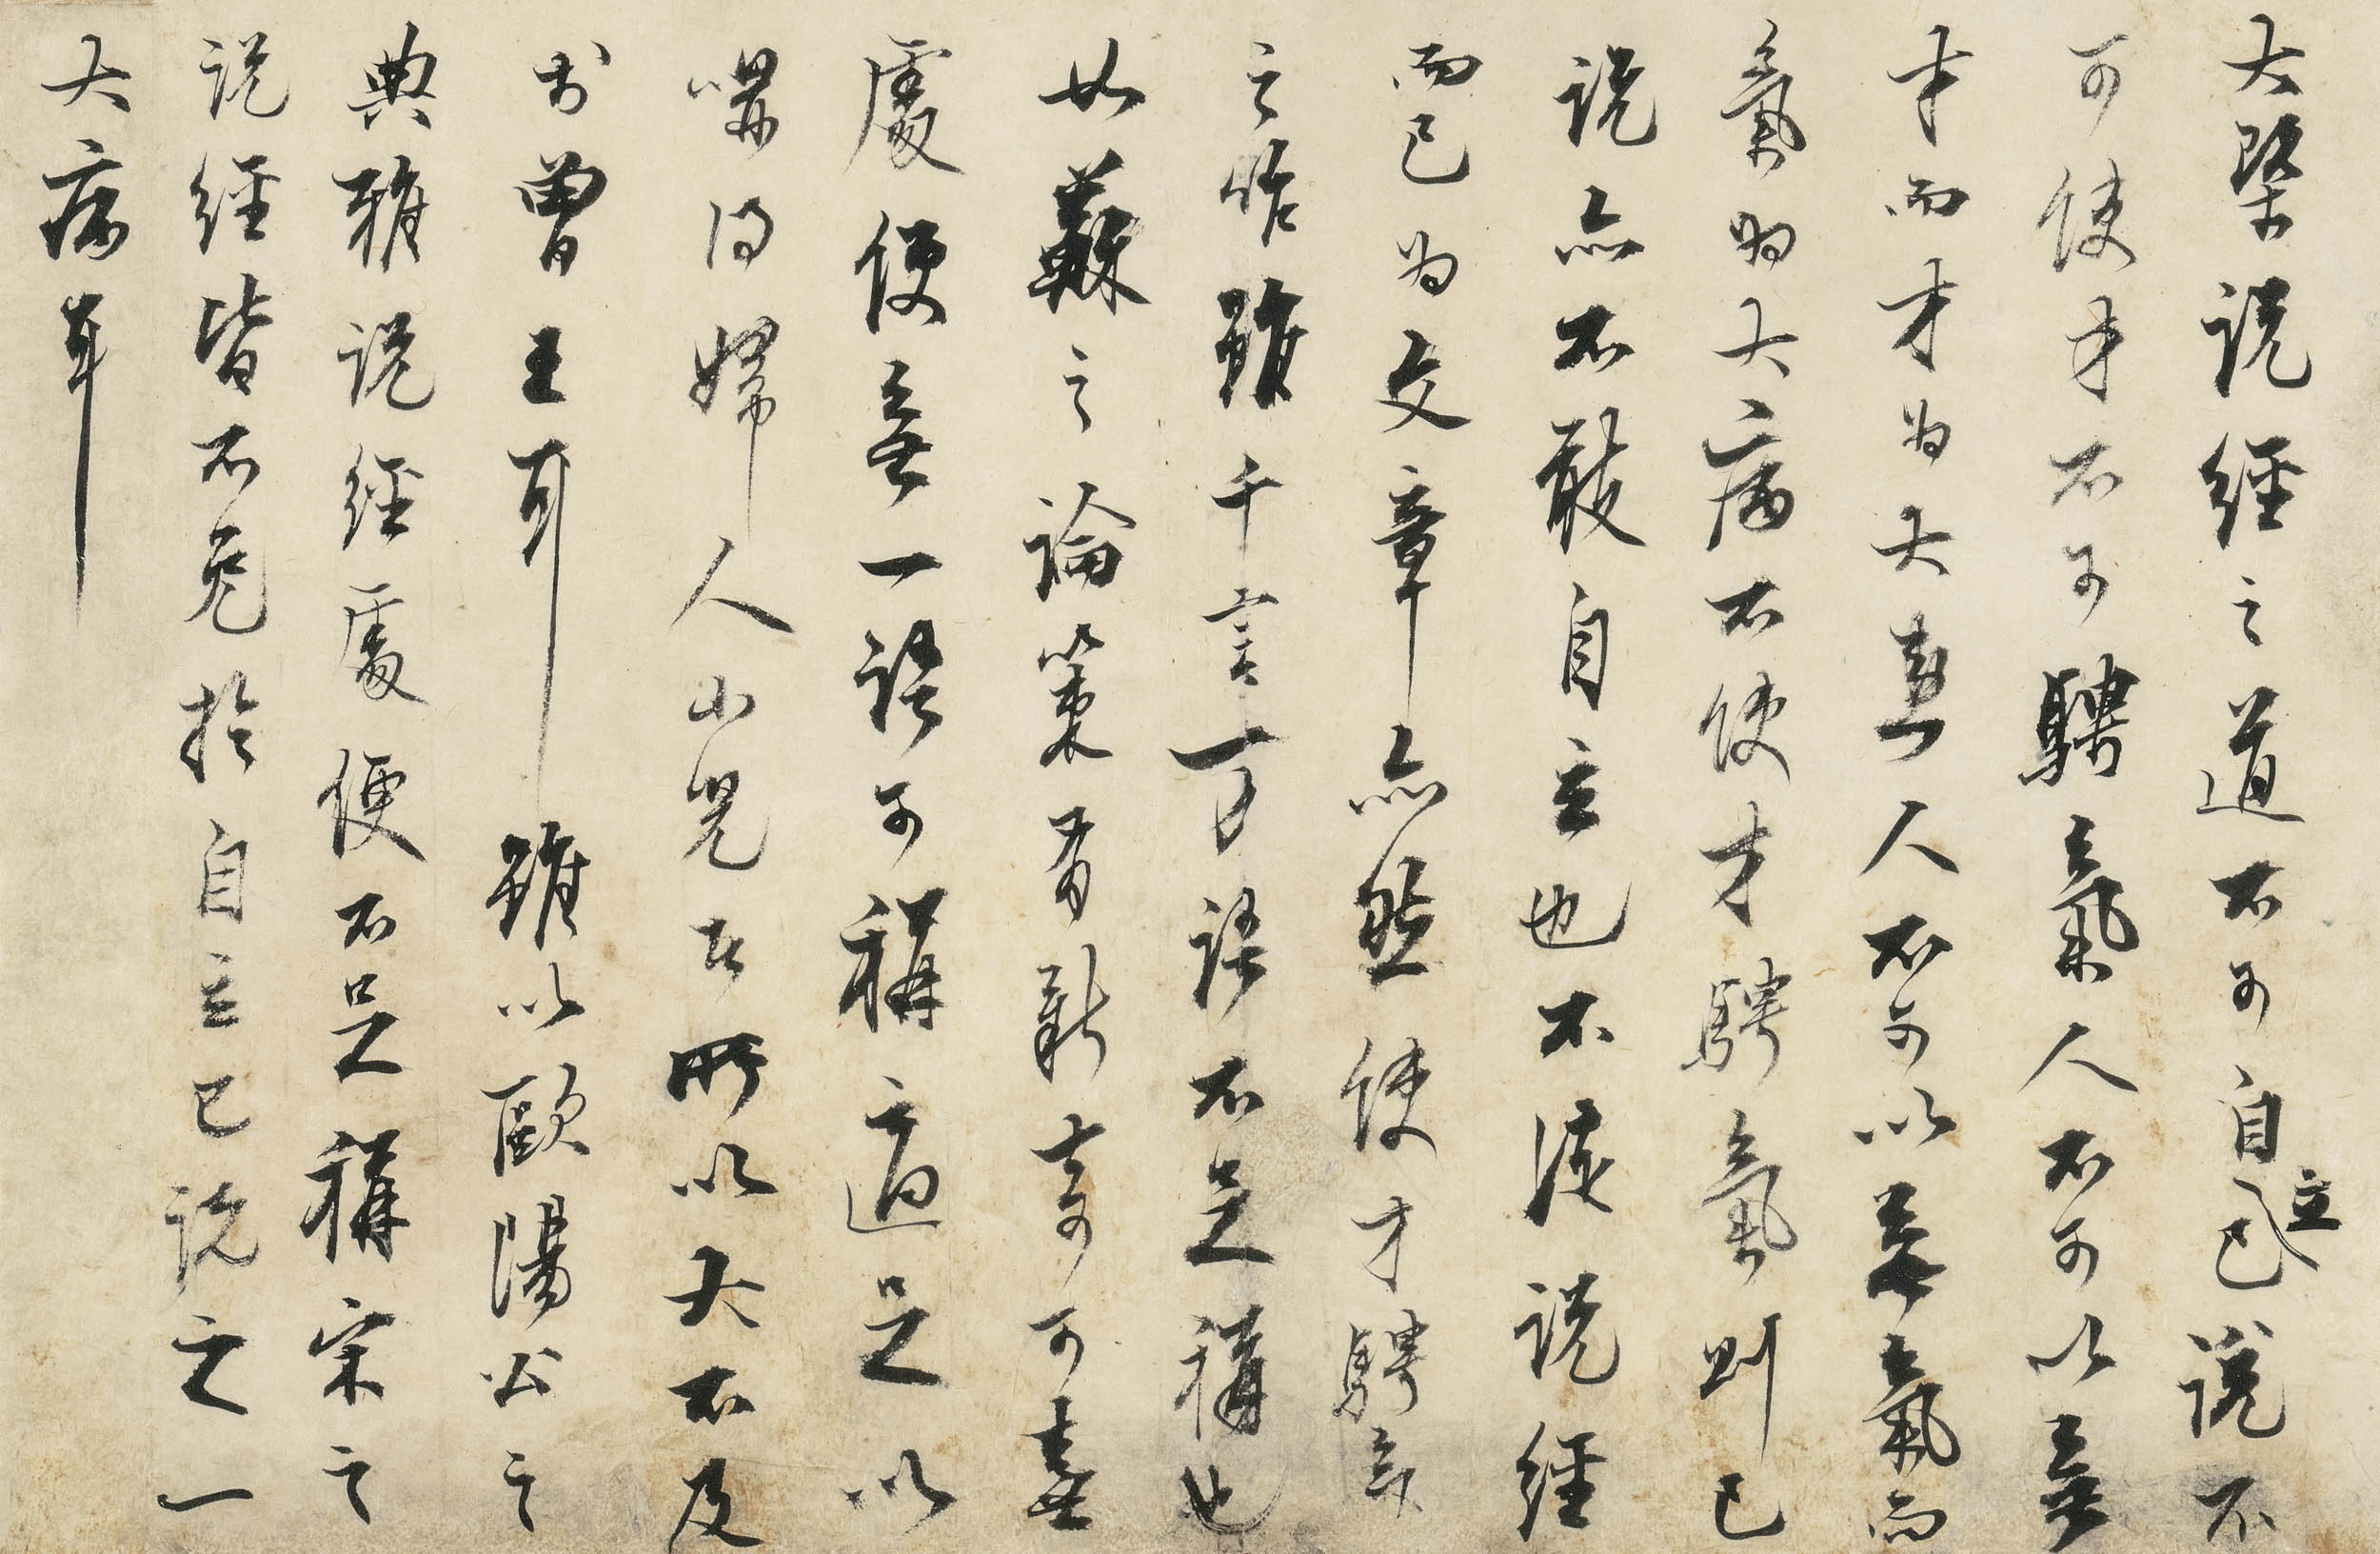 大槩說經之道不可自立己說不
可使才不可騁氣人不可以無
才而才為大人不可以無氣而
氣為大病不使才騁氣則己
說亦不敢自立也不徒說經
而已為文章亦然使才騁氣
之作雖千言万語不足稱也
如蘇之論策有新奇可喜
處便無一語可稱適足以
得婦人小兒所以大不及
於曾王耳雖以歐陽公之
典雅說經處便不足稱宋之
說經皆不免於自立己說之一
大病耳